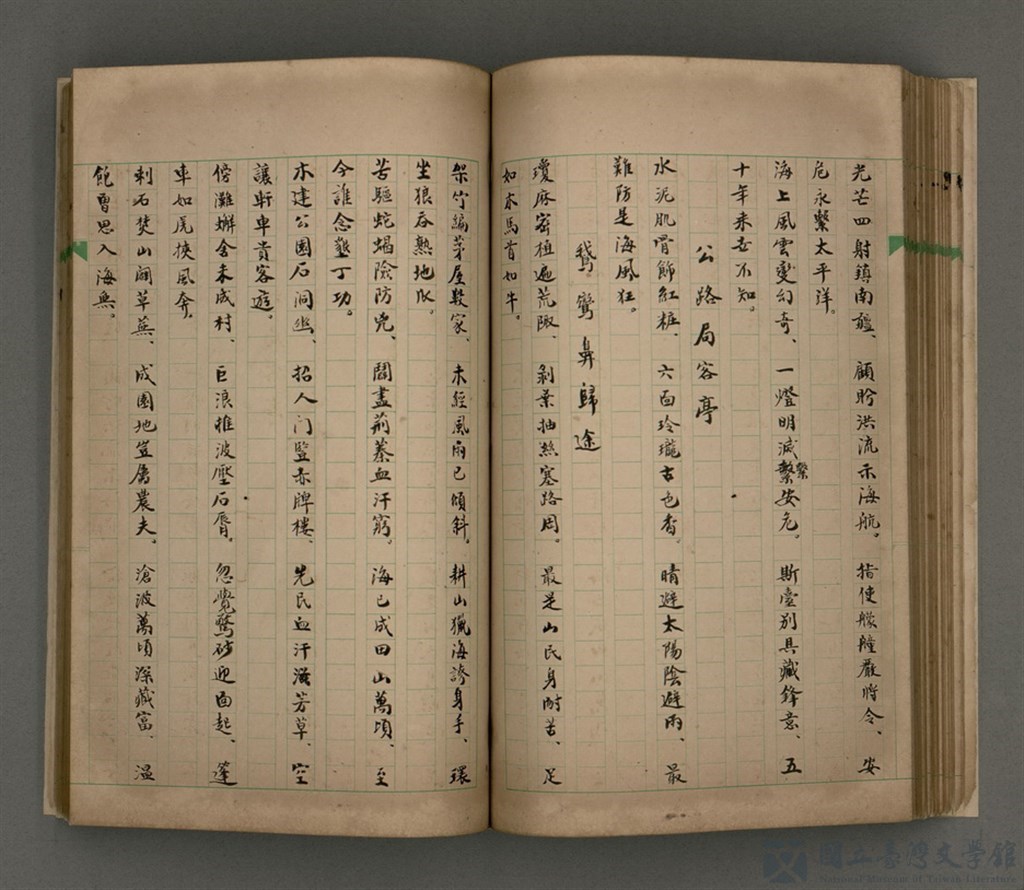 光芒四射鎮南疆、顧盼洪流示海航。指使艨艟嚴將令、安
危永繫太平洋。
海上風雲變幻奇、一燈明滅繫安危。斯臺別具藏鋒意、五
十年来世不知。
公路局客亭
水泥肌骨飾紅粧、六面玲瓏古色香。晴避太陽陰避雨、最
難防是海風狂。
鵝鸞鼻歸途
瓊麻密植遍荒陬、剝葉抽絲塞路周。最是山民身耐苦、足
如木馬首如牛。
架竹編茅屋數家、未經風雨已傾斜。耕山獵海誇身手、環
坐狼吞熟地瓜。
苦驅蛇蝎險防兇、闢盡荊蓁血汗窮。海已成田山萬頃、至
今誰念墾丁功。
木建公園石洞幽、招人门豎赤牌樓、先民血汗滋芳草、空
讓軒車貴客遊。
傍灘蠏舍未成村、巨浪推波壓石脣。忽覺驚砂迎面起、篷
車如虎挾風奔。
剩石焚山闢草蕪、成園地豈屬農夫。滄波萬頃深藏富、溫
飽曾思入海無。
國立臺灣文學館
National Museum of Taiwan Literature